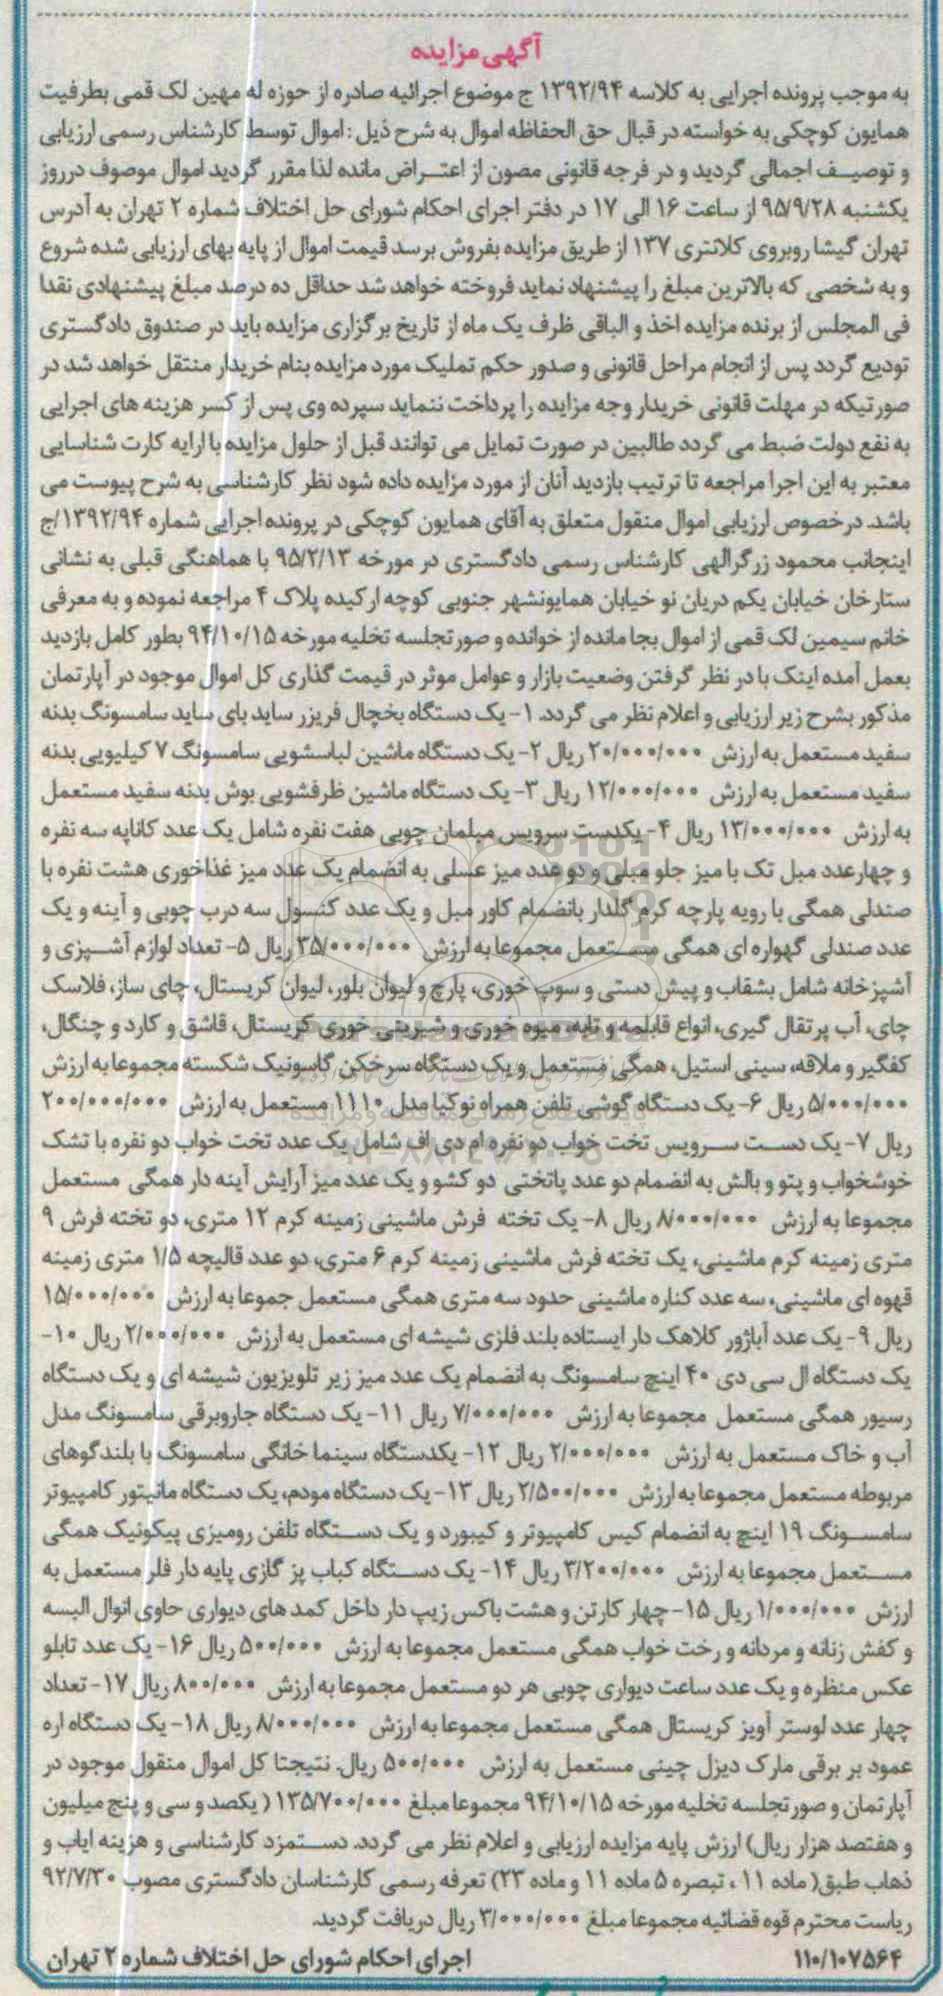 آگهی مزایده
به موجب پرونده اجرایی به کلاسه ۱۳۹۲/۹۴ ج موضوع اجرائیه صادره از حوزه له مهین لک قمی بطرفیت
همایون کوچکی به خواسته در قبال حق الحفاظه اموال به شرح ذیل : اموال توسط کارشناس رسمی ارزیابی
و توصیف اجمالی گردید و در فرجه قانونی مصون از اعتراض مانده لذا مقرر گردید اموال موصوف درروز
یکشنبه ۹۵/۹/۲۸ از ساعت ۱۶ الی ۱۷ در دفتر اجرای احکام شورای حل اختلاف شماره ۲ تهران به آدرس
تهران گیشا روبروی کلانتری ۱۳۷ از طریق مزایده بفروش برسد قیمت اموال از پایه بهای ارزیابی شده شروع
و به شخصی که بالاترین مبلغ را پیشنهاد نماید فروخته خواهد شد حداقل ده درصد مبلغ پیشنهادی نقدا
فی المجلس از برنده مزایده اخذ و الباقی ظرف یک ماه از تاریخ برگزاری مزایده باید در صندوق دادگستری
تودیع گردد پس از انجام مراحل قانونی و صدور حکم تملیک مورد مزایده بنام خریدار منتقل خواهد شد در
صورتیکه در مهلت قانونی خریدار وجه مزایده را پرداخت ننماید سپرده وی پس از کسر هزینه های اجرایی
به نفع دولت ضبط می گردد طالبین در صورت تمایل می توانند قبل از حلول مزایده با ارایه کارت شناسایی
معتبر به این اجرا مراجعه تا ترتیب بازدید آنان از مورد مزایده داده شود نظر کارشناسی به شرح پیوست می
باشد. درخصوص ارزیابی اموال منقول متعلق به آقای همایون کوچکی در پرونده اجرایی شماره ۱۳۹۲/۹۴/ج
اینجانب محمود زرگرالهی کارشناس رسمی دادگستری در مورخه ۹۵/۲/۱۳ با هماهنگی قبلی به نشانی
ستارخان خیابان یکم دریان نو خیابان همایونشهر جنوبی کوچه ارکیده پلاک ۴ مراجعه نموده و به معرفی
خانم سیمین لک قمی از اموال بجا مانده از خوانده و صورتجلسه تخلیه مورخه ۹۴/۱۰/۱۵ بطور کامل بازدید
بعمل آمده اینک با در نظر گرفتن وضعیت بازار و عوامل موثر در قیمت گذاری کل اموال موجود در آپارتمان
مذکور بشرح زیر ارزیابی و اعلام نظر می گردد. ۱- یک دستگاه یخچال فریزر ساید بای ساید سامسونگ بدنه
سفید مستعمل به ارزش ۲۰/۰۰۰/۰۰۰ ریال ۲- یک دستگاه ماشین لباسشویی سامسونگ ۷ کیلیویی بدنه
سفید مستعمل به ارزش ۱۲/۰۰۰/۰۰۰ ریال ۳- یک دستگاه ماشین ظرفشویی بوش بدنه سفید مستعمل
به ارزش ۱۳/۰۰۰/۰۰۰ ریال ۴- یکدست سرویس مبلمان چوبی هفت نفره شامل یک عدد کاناپه سه نفره
و چهارعدد مبل تک با میز جلو مبلی و دو عدد میز عسلی به انضمام یک عدد میز غذاخوری هشت نفره با
صندلی همگی با رویه پارچه کرم گلدار بانضمام کاور مبل و یک عدد کنسول سه درب چوبی و آینه و یک
عدد صندلی گهواره ای همگی مستعمل مجموعا به ارزش ۳۵/۰۰۰/۰۰۰ ریال ۵- تعداد لوازم آشپزی و
آشپزخانه شامل بشقاب و پیش دستی و سوپ خوری، پارچ و لیوان بلور، لیوان کریستال، چای ساز، فلاسک
چای، آب پرتقال گیری، انواع قابلمه و تابه، میوه خوری و شیرینی خوری کریستال، قاشق و کارد و چنگال،
کفگیر و ملاقه، سینی استیل، همگی مستعمل و یک دستگاه سرخکن گاسونیک شکسته مجموعا به ارزش
۵/۰۰۰/۰۰۰ ریال ۶- یک دستگاه گوشی تلفن همراه نوکیا مدل ۱۱۱۰ مستعمل به ارزش ۲۰۰/۰۰۰/۰۰۰
ریال ۷- یک دست سرویس تخت خواب دو نفره ام دی اف شامل یک عدد تخت خواب دو نفره با تشک
خوشخواب و پتو و بالش به انضمام دو عدد پاتختی دو کشو و یک عدد میز آرایش آینه دار همگی مستعمل
مجموعا به ارزش ۸/۰۰۰/۰۰۰ ریال ۸- یک تخته فرش ماشینی زمینه کرم ۱۲ متری، دو تخته فرش ۹
متری زمینه کرم ماشینی، یک تخته فرش ماشینی زمینه کرم ۶ متری، دو عدد قالیچه ۱/۵ متری زمینه
قهوه ای ماشینی، سه عدد کناره ماشینی حدود سه متری همگی مستعمل جموعا به ارزش ۱۵/۰۰۰/۰۰۰
ریال ۹- یک عدد آباژور کلاهک دار ایستاده بلند فلزی شیشه ای مستعمل به ارزش ۲/۰۰۰/۰۰۰ ریال ۱۰-
یک دستگاه ال سی دی ۴۰ اینچ سامسونگ به انضمام یک عدد میز زیر تلویزیون شیشه ای و یک دستگاه
رسیور همگی مستعمل مجموعا به ارزش ۷/۰۰۰/۰۰۰ ریال ۱۱- یک دستگاه جاروبرقی سامسونگ مدل
آب و خاک مستعمل به ارزش ۲/۰۰۰/۰۰۰ ریال ۱۲- یکدستگاه سینما خانگی سامسونگ با بلندگوهای
مربوطه مستعمل مجموعا به ارزش ۲/۵۰۰/۰۰۰ ریال ۱۳- یک دستگاه مودم، یک دستگاه مانیتور کامپیوتر
سامسونگ ۱۹ اینچ به انضمام کیس کامپیوتر و کیبورد و یک دستگاه تلفن رومیزی پیکونیک همگی
مستعمل مجموعا به ارزش ۳/۲۰۰/۰۰۰ ریال ۱۴- یک دستگاه کباب پز گازی پایه دار فلر مستعمل به
ارزش ۱/۰۰۰/۰۰۰ ریال ۱۵- چهار کارتن و هشت باکس زیپ دار داخل کمد های دیواری حاوی انوال البسه
و کفش زنانه و مردانه و رخت خواب همگی مستعمل مجموعا به ارزش ۵۰۰/۰۰۰ ریال ۱۶- یک عدد تابلو
عکس منظره و یک عدد ساعت دیواری چوبی هر دو مستعمل مجموعا به ارزش ۸۰۰/۰۰۰ ریال ۱۷- تعداد
چهار عدد لوستر آویز کریستال همگی مستعمل مجموعا به ارزش ۸/۰۰۰/۰۰۰ ریال ۱۸- یک دستگاه اره
عمود بر برقی مارک دیزل چینی مستعمل به ارزش ۵۰۰/۰۰۰ ریال. نتیجتا کل اموال منقول موجود در
آپارتمان و صورتجلسه تخلیه مورخه ۹۴/۱۰/۱۵ مجموعا مبلغ ۱۳۵/۷۰۰/۰۰۰ ( یکصد و سی و پنج میلیون
و هفتصد هزار ریال) ارزش پایه مزایده ارزیابی و اعلام نظر می گردد. دستمزد کارشناسی و هزینه ایاب و
ذهاب طبق( ماده ۱۱ ، تبصره ۵ ماده ۱۱ و ماده ۲۳) تعرفه رسمی کارشناسان دادگستری مصوب ۹۲/۷/۳۰
ریاست محترم قوه قضائیه مجموعا مبلغ ۳/۰۰۰/۰۰۰ ریال دریافت گردید.
۱۱۰/۱۰۷۵۶۴ اجرای احکام شورای حل اختلاف شماره ۲ تهران